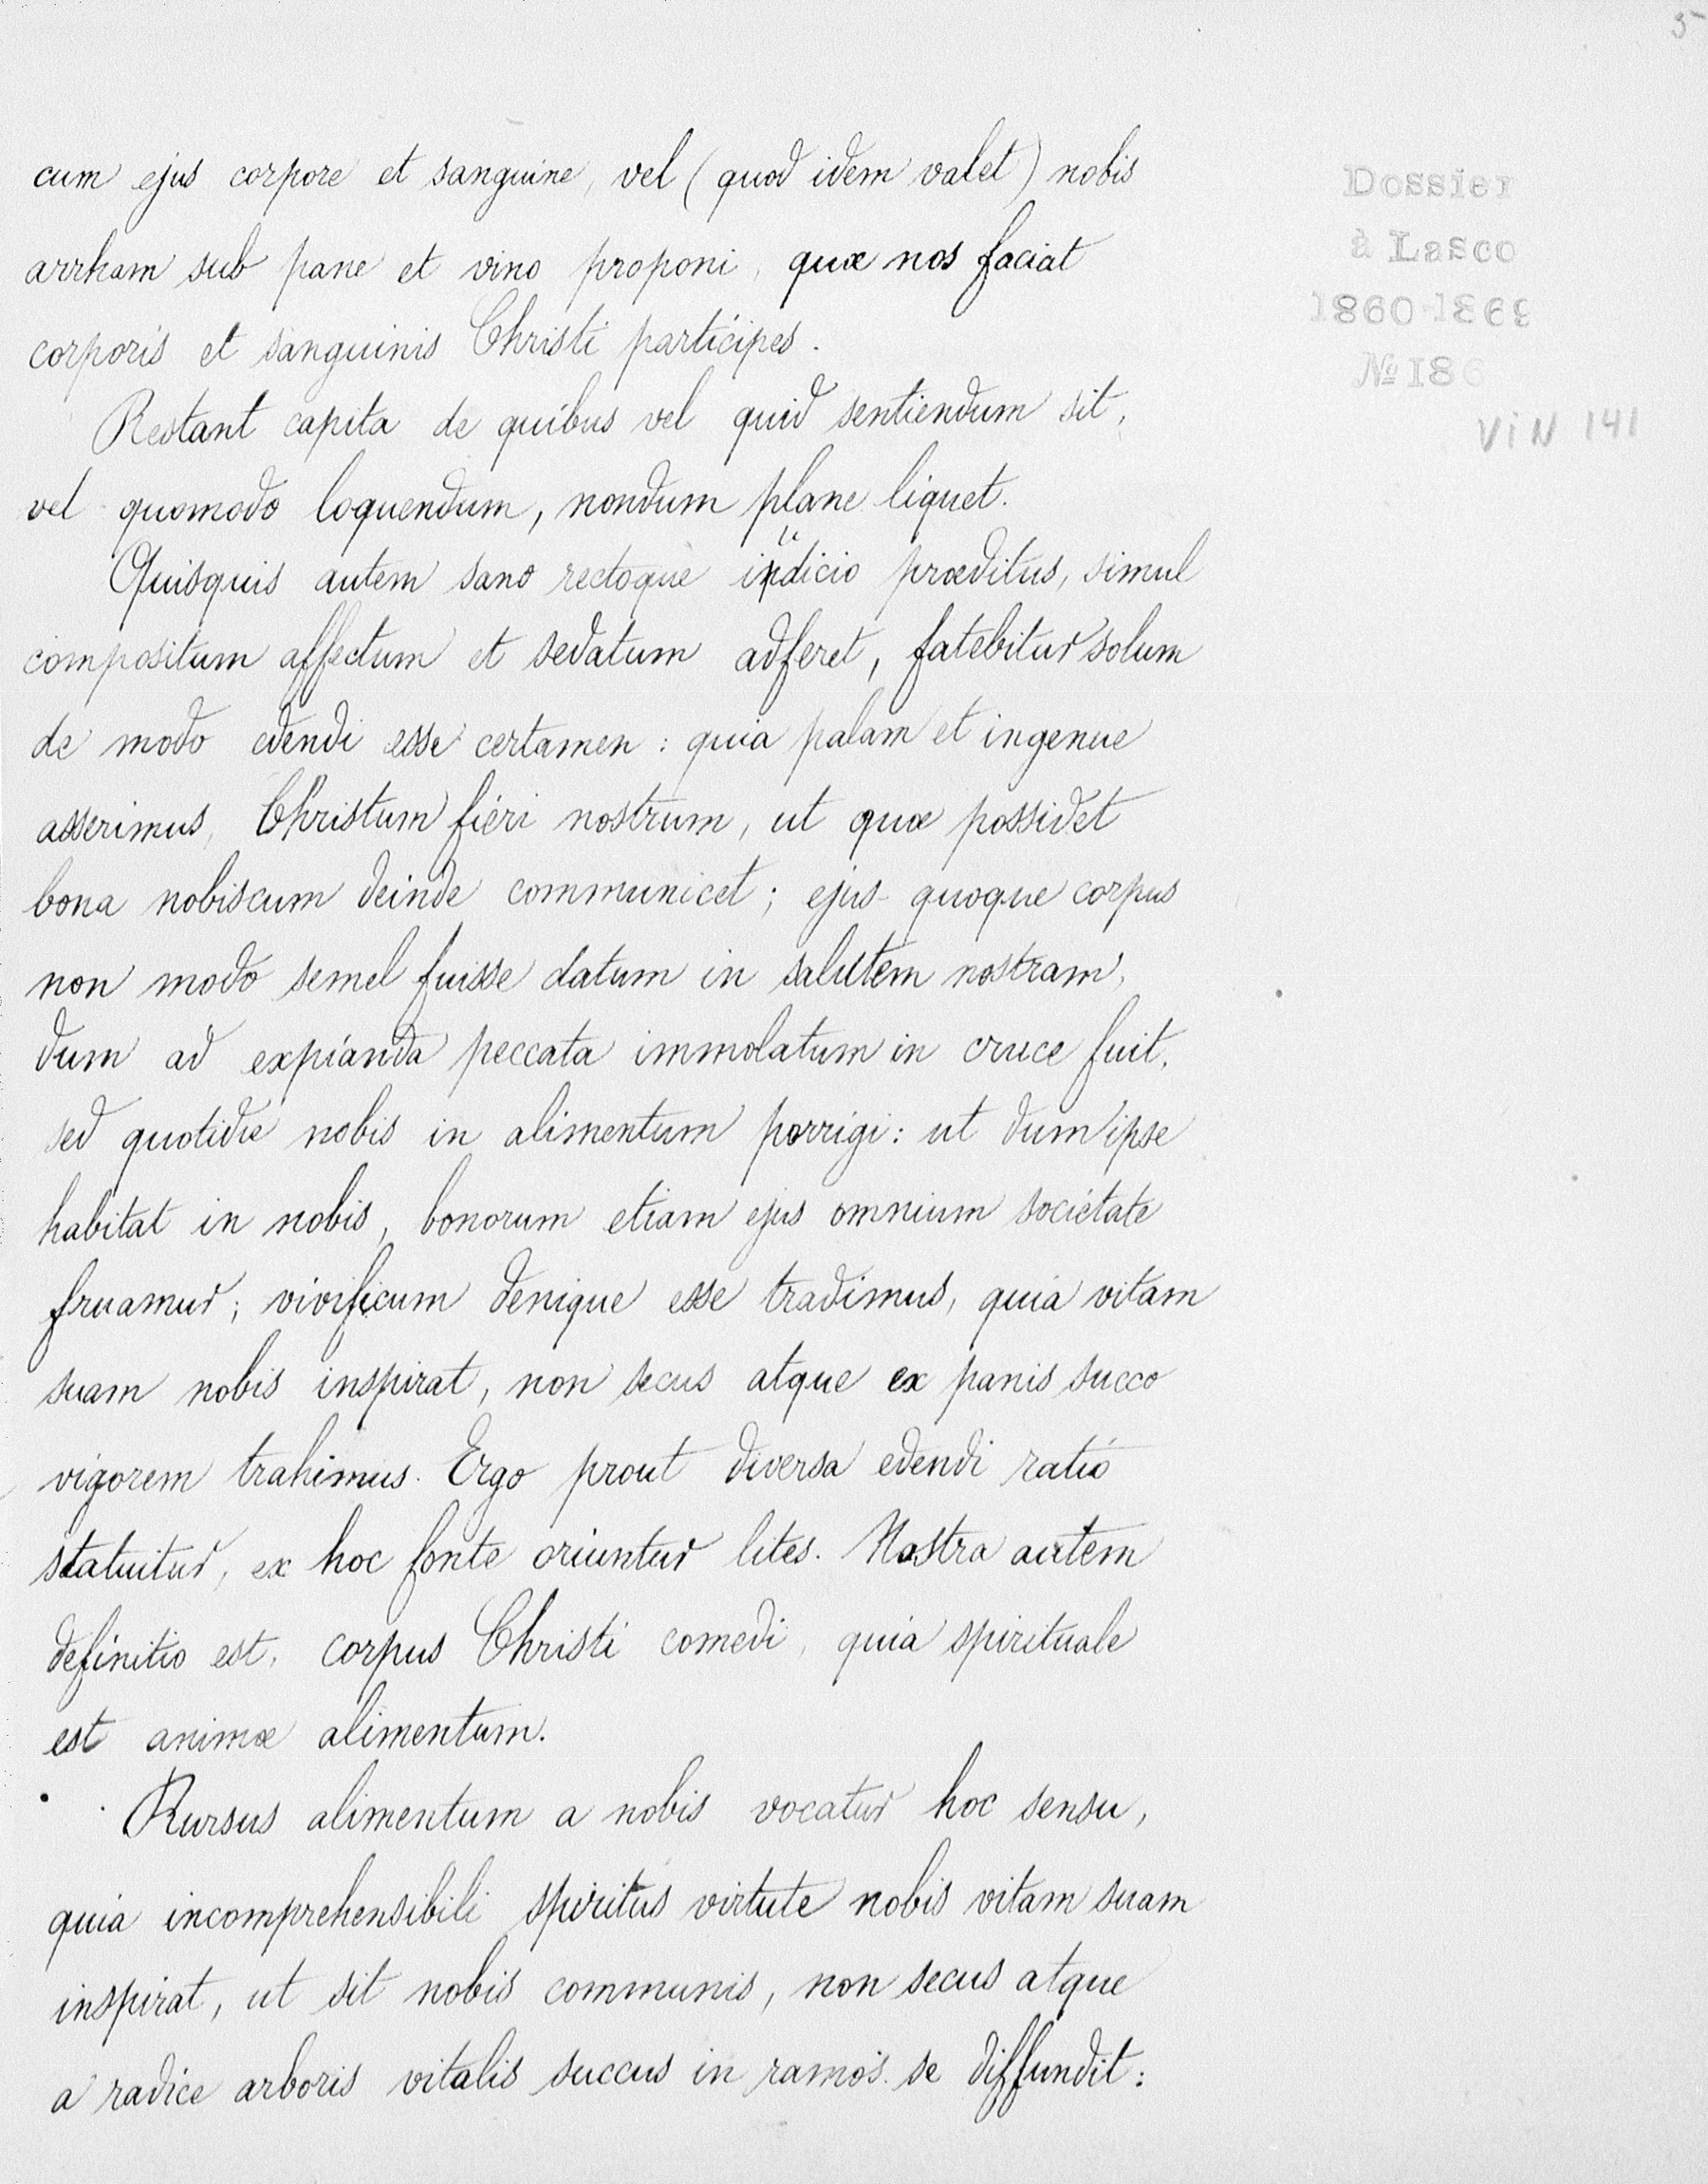 5
cum ejus corpore et sanguine, vel (quod idem valet) nobis
arrham sub pane et vino proponi, quæ nos faciat
corporis et sanguinis Christi participes.
Restant capita de quibus vel quid sentiendum sit,
vel quomodo loquendum, nondum plane liquet.
Quisquis autem sano rectoque iudicio præditus, simul
compositum affectum et sedatum adferet, fatebitur solum
de modo edendi esse certamen : quia palam et ingenue
asserimus, Christum fieri nostrum, ut quæ possidet
bona nobiscum deinde communicet ; ejus quoque corpus
non modo semel fuisse datum in salutem nostram,
dum ad expianda peccata immolatum in cruce fuit,
sed quotidie nobis in alimentum porrigi : ut dum ipse
habitat in nobis, bonorum etiam ejus omnium societate
fruamur ; vivificum denique esse tradimus, quia vitam
suam nobis inspirat, non secus atque ex panis succo
vigorem trahimus. Ergo prout diversa edendi ratio
statuitur, ex hoc fonte oriuntur lites. Nostra autem
definitio est, corpus Christi comedi, quia spirituale
est animæ alimentum.
Rursus alimentum a nobis vocatur hoc sensu,
quia incomprehensibili spiritus virtute nobis vitam suam
inspirat, ut sit nobis communis, non secus atque
a radice arboris vitalis succus in ramos se diffundit :
Dossier
à Lasco
1860-1869
№ 186
ViN 141